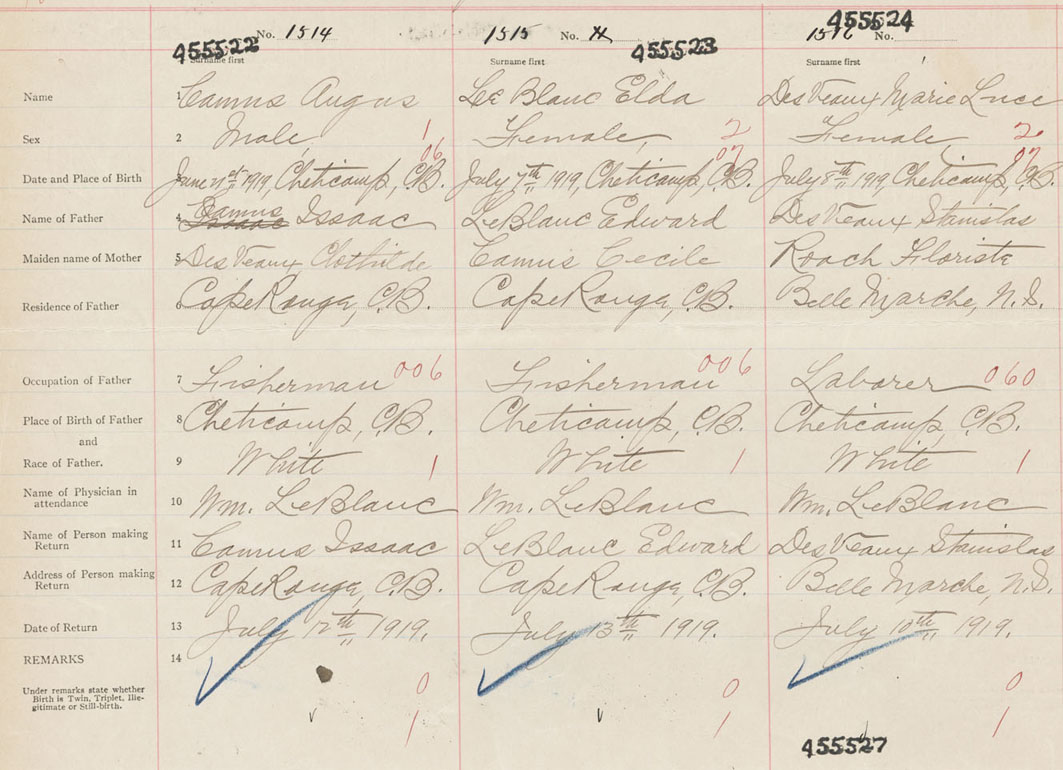 455522 No. 1514 1515 No. 455523 1516 No. 455524
Surname first Surname first Surname first
Name 1 Camus Angus Le Blanc Elda DesVeaux Marie Luce
Sex 2 Male, 1 Female, 2 Female, 2
06 07 07
Date and Place of Birth 3 June 1919, Cheticamp, C.B. July 7th 1919, Cheticamp, C.B. July 8th 1919, Cheticamp, C.B.
Name of Father 4 Camus Issaac LeBlanc Edward DesVeaux Stanislas
Maiden name of Mother 5 DesVeaux Clothilde Camus Cecile Roach Floriste
Residence of Father 6 Cape Rouge, C.B. Cape Rouge, C.B. Belle Marche, N.S.
Occupation of Father 7 Fisherman 006 Fisherman 006 Laborer 060
Place of Birth of Father 8 Cheticamp, C.B. Cheticamp, C.B. Cheticamp, C.B.
and
Race of Father. 9 White 1 White 1 White 1
Name of Physician in
attendance 10 Wm. LeBlanc Wm. LeBlanc Wm. LeBlanc
Name of Person making
Return 11 Camus Issaac LeBlanc Edward DesVeaux Stanislas
Address of Person making
Return 12 Cape Rouge, C.B. Cape Rouge, C.B. Belle Marche, N.S.
Date of Return 13 July 12th 1919. July 13th 1919. July 10th 1919.
REMARKS 14
Under remarks state whether
Birth is Twin, Triplet, Ille-
gitimate or Still-birth.
0 0 0
1 1 1
455527